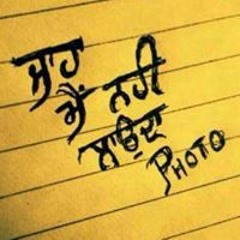 ਜਾਹ
ਮੈਂ ਨਹੀ
ਲਾਉਂਦਾ
PHOTO